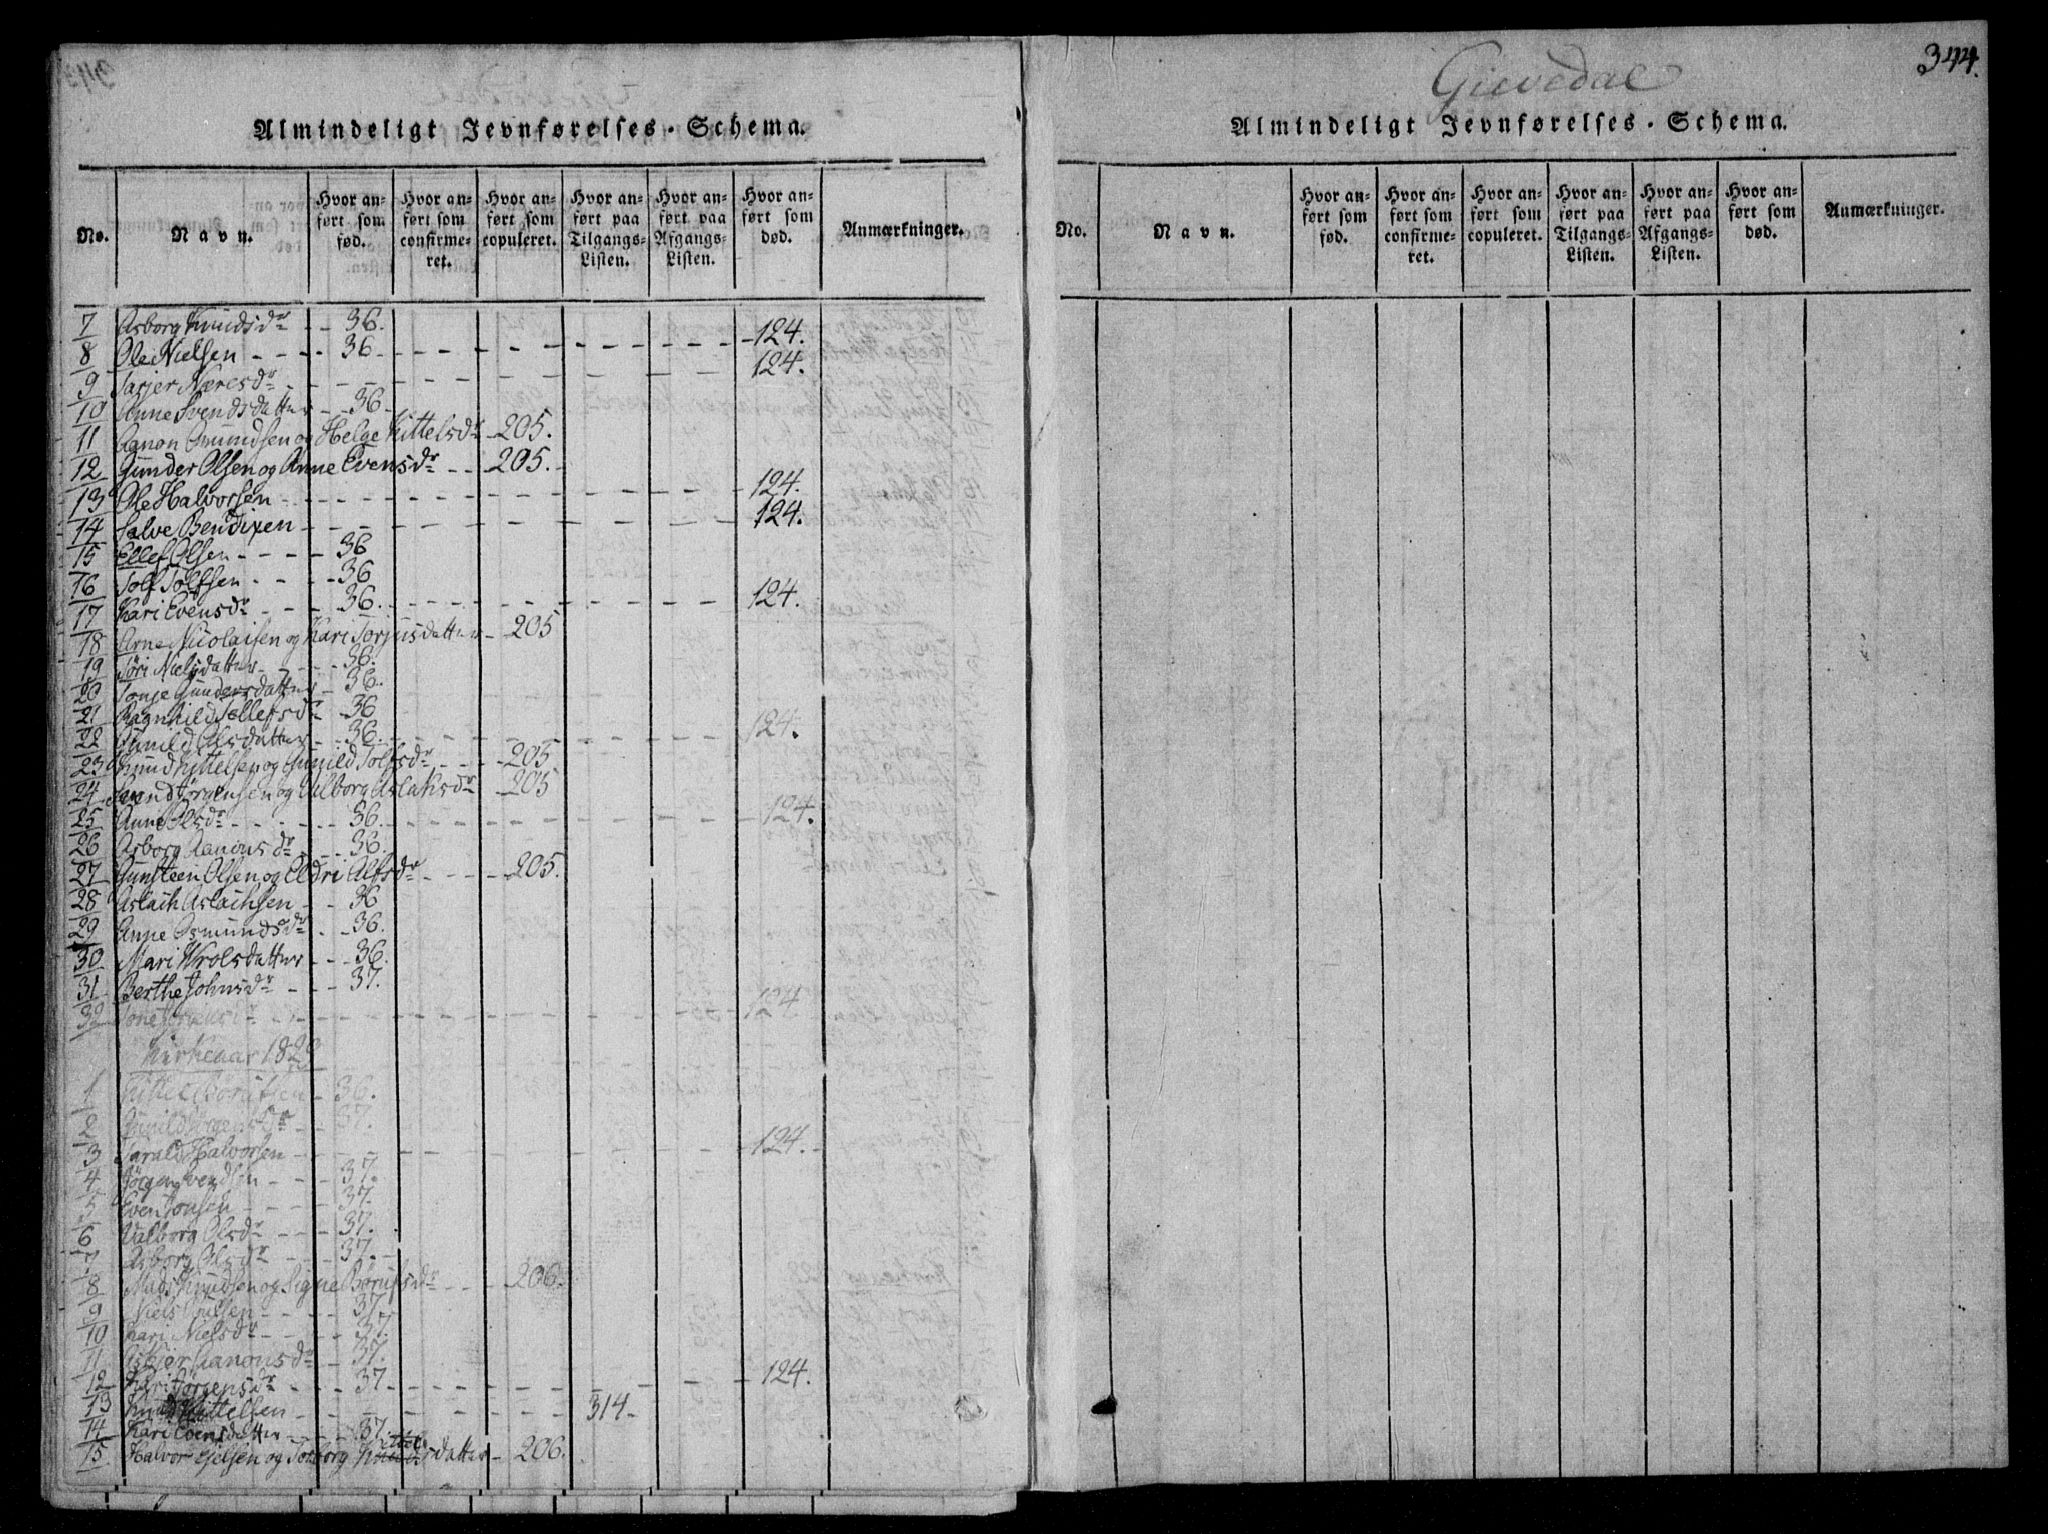 Almindeligt Jevnførelses-Schema.
No. Navn. Hvor anført som fød. Hvor anført som confirmeret. Hvor anført som copuleret. Hvor anført paa Tilgangs-Listen. Hvor anført paa Afgangs-Listen. Hvor anført som død. Anmærkninger.
7 Asborg Knudsdr 36.
8 Ole Nielsen 36 124.
9 Tarjer Næresdr 124.
10 Anne Svendsdatter 36
11 Aanon Omundsen og Helge Kittelsdr 205.
12 Gunder Olsen og Anne Evensdr 205.
13 Ole Halvorsen 124.
14 Salve Bendixen 124.
15 Ellef Olsen 36
16 Tolf Tolfsen 36
17 Kari Evensdr 36. 124.
18 Arne Nicolaisen og Kari Torjusdatter 205
19 Töri Nielsdatter 36.
20 Tonje Gundersdatter 36.
21 Ragnhild Tellefsdr 36
22 Gunild Olsdatter 36. 124.
23 Knud Kittelsen og Gunild Tolfsdr 205
24 Svend Jörgensen og Valborg Aslaksdr 205
25 Anne Olsdr 36. 124.
26 Asborg Aanonsdr 36.
27 Gunsteen Olsen og Eldri Alfsdr 205.
28 Aslach Aslachsen 36
29 Anne Osmundsdr 36.
30 Mari Wrolsdatter 36.
31 Berthe Johnsdr 37.
32 Tone Jörgensdr 124
Kirkeaar 1820
1 Kittel 36.
2 Gunild Jörgensdr 37.
3 Tarald Halvorsen 124.
4 Jörgen Svendsen 37.
5 Even Jonsen 37.
6 Valborg Olsdr 37.
7 Asborg Olsdr 37.
8 Mads Knudsen og Signe Börufsdr 206.
9 Niels 37.
10 Kari Nielsdr 37.
11 Asbjer Aanonsdr 37.
12 Kari Jörgensdr 37 124.
13 Knud Kittelsen 314.
14 Kari Evensdatter 37.
15 Halvor Ejelsen og Torborg Kittelsdatter 206.
344.
Gievedal
Almindeligt Jevnførelses-Schema.
No. Navn. Hvor anført som fød. Hvor anført som confirmeret. Hvor anført som copuleret. Hvor anført paa Tilgangs-Listen. Hvor anført paa Afgangs-Listen. Hvor anført som død. Anmærkninger.